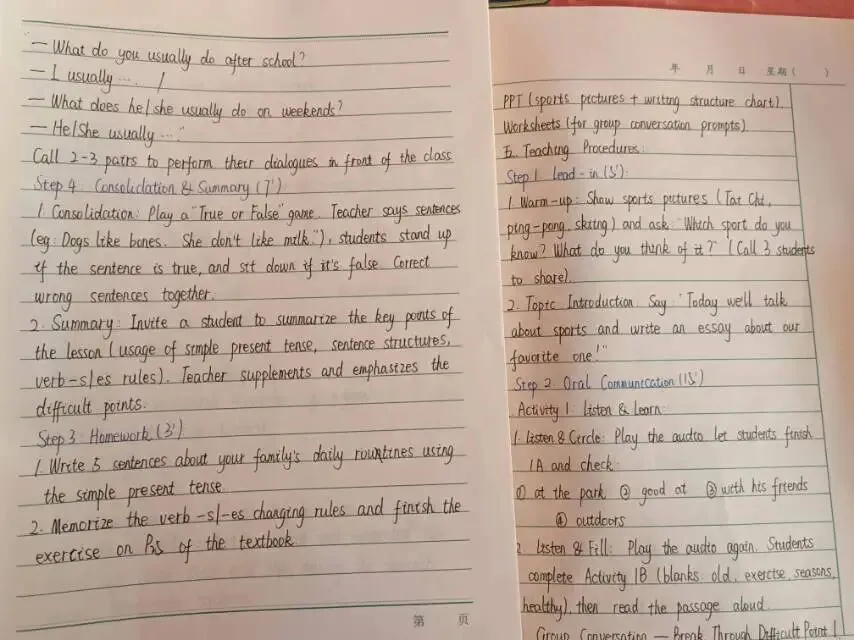 — What do you usually do after school?
— I usually .... /
— What does he/she usually do on weekends?
— He/She usually ..."
Call 2-3 pairs to perform their dialogues in front of the class
Step 4. Consolidation & Summary (7')
1. Consolidation: Play a "True or False" game. Teacher says sentences
(eg: Dogs like bones. She don't like milk."), students stand up
if the sentence is true, and sit down if it's false. Correct
wrong sentences together.
2. Summary: Invite a student to summarize the key points of
the lesson (usage of simple present tense, sentence structures,
verb-s/es rules). Teacher supplements and emphasizes the
difficult points.
Step 3: Homework (3')
1. Write 5 sentences about your family's daily routines using
the simple present tense.
2. Memorize the verb -s/-es changing rules and finish the
exercise on of the textbook.
第 页
年 月 日 星期( )
PPT (sports pictures + writing structure chart).
Worksheets (for group conversation prompts)
五. Teaching Procedures:
Step 1. Lead-in (5'):
1. Warm-up: Show sports pictures (Tai Chi,
ping-pong, skiing) and ask: "Which sport do you
know? What do you think of it?" (Call 3 students
to share).
2. Topic Introduction. Say: "Today we'll talk
about sports and write an essay about our
favorite one!"
Step 2: Oral Communication (15')
Activity 1: Listen & Learn:
1. Listen & Circle: Play the audio let students finish
1A and check:
① at the park ② good at ③ with his friends
④ outdoors
2 Listen & Fill: Play the audio again. Students
complete Activity 1B (blanks: old, exercise, seasons,
healthy), then read the passage aloud.
Group Conversation — Break Through Difficult Point 1